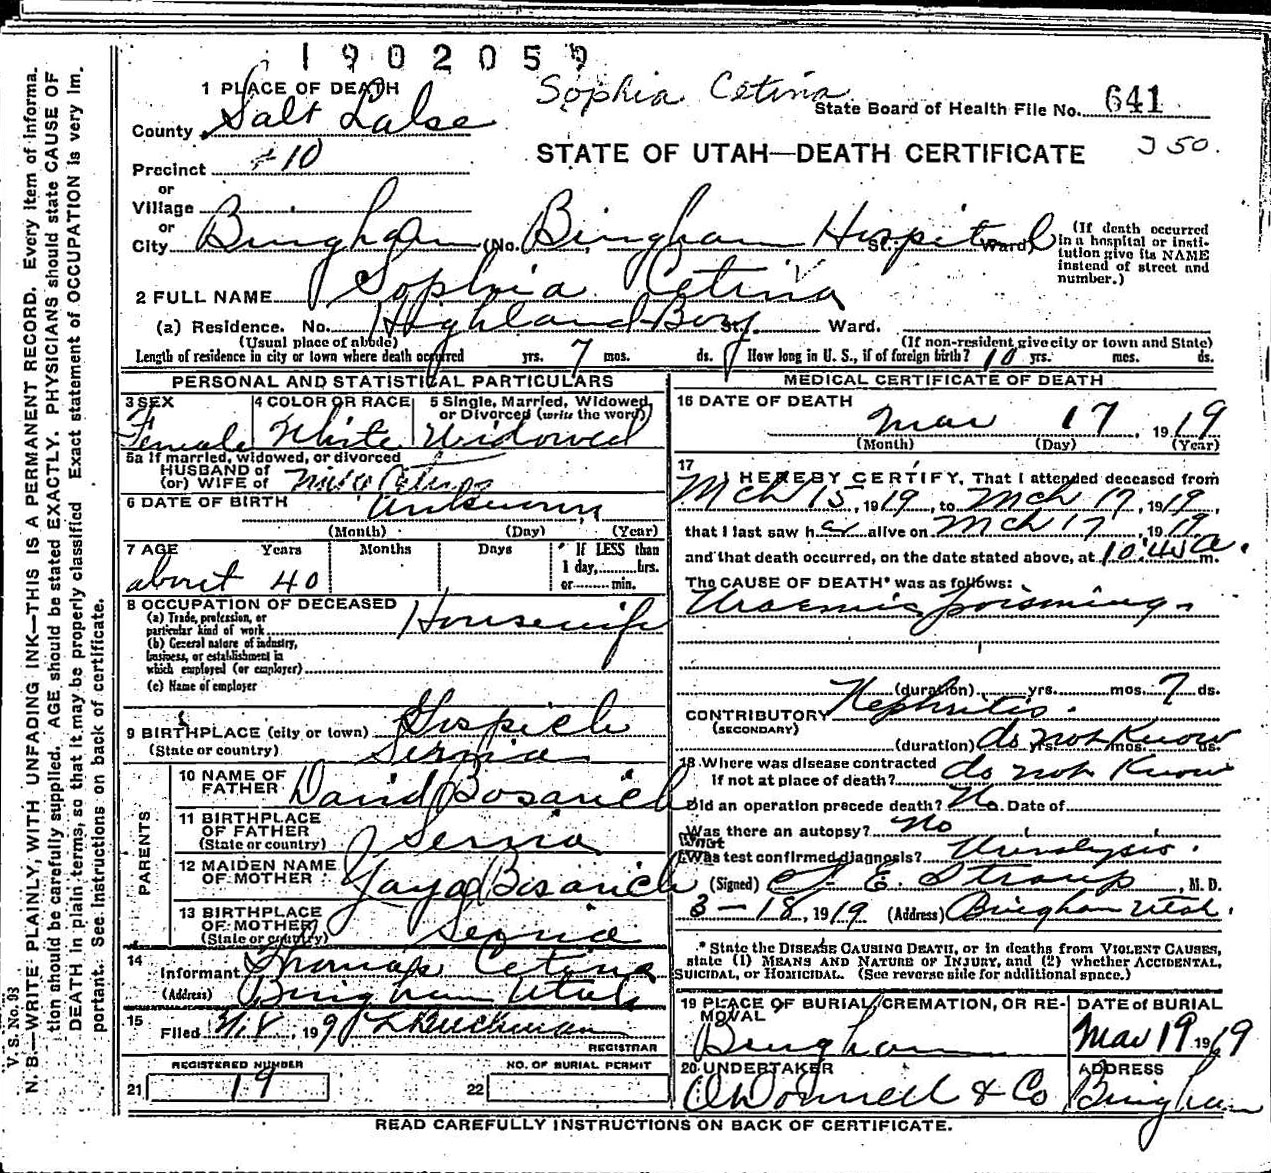 1902059
Sophia Cetina
1 PLACE OF DEATH
State Board of Health File No. 641
County Salt Lake
STATE OF UTAH—DEATH CERTIFICATE
J 50.
Precinct #10
or
Village
or
City Bingham (No. Bingham Hospital St. Ward)
(If death occurred in a hospital or institution give its NAME instead of street and number.)
2 FULL NAME Sophia Cetina
(a) Residence. No. Highland Boy St. Ward.
(Usual place of abode)
(If non-resident give city or town and State)
Length of residence in city or town where death occurred yrs. 7 mos. ds. How long in U. S., if of foreign birth? 10 yrs. mos. ds.
PERSONAL AND STATISTICAL PARTICULARS
3 SEX
Female
4 COLOR OR RACE
White
5 Single, Married, Widowed, or Divorced (write the word)
Widowed
5a If married, widowed, or divorced
HUSBAND of
(or) WIFE of Cetina
6 DATE OF BIRTH Unknown
(Month) (Day) (Year)
7 AGE Years Months Days
If LESS than
1 day, hrs.
or min.
about 40
8 OCCUPATION OF DECEASED
(a) Trade, profession, or
particular kind of work Housewife
(b) General nature of industry,
business, or establishment in
which employed (or employer)
(c) Name of employer
9 BIRTHPLACE (city or town) Gospich
(State or country) Servia
PARENTS
10 NAME OF
FATHER David Bosanich
11 BIRTHPLACE
OF FATHER
(State or country) Servia
12 MAIDEN NAME
OF MOTHER Yaya Bosanich
13 BIRTHPLACE
OF MOTHER
(State or country) Servia
14
Informant Thomas Cetina
(Address) Bingham Utah
15
Filed 3/18, 1919 Buckman
REGISTRAR
REGISTERED NUMBER
21 19
NO. OF BURIAL PERMIT
22
MEDICAL CERTIFICATE OF DEATH
16 DATE OF DEATH
Mar 17, 1919
(Month) (Day) (Year)
17
I HEREBY CERTIFY, That I attended deceased from
Mch 15, 1919, to Mch 17, 1919,
that I last saw her alive on Mch 17 1919
and that death occurred, on the date stated above, at 10:45 a. m.
The CAUSE OF DEATH* was as follows:
Uraemic poisoning.
(duration) yrs. mos. 7 ds.
CONTRIBUTORY Nephritis.
(SECONDARY)
(duration) do not know yrs. mos. ds.
18 Where was disease contracted
if not at place of death? do not know
Did an operation precede death? No. Date of
Was there an autopsy? No
What
Was test confirmed diagnosis? Urinalysis.
(Signed) E. Straup, M. D.
3-18, 1919 (Address) Bingham Utah.
* State the DISEASE CAUSING DEATH, or in deaths from VIOLENT CAUSES,
state (1) MEANS AND NATURE OF INJURY, and (2) whether ACCIDENTAL,
SUICIDAL, or HOMICIDAL. (See reverse side for additional space.)
19 PLACE OF BURIAL, CREMATION, OR RE-
MOVAL
Bingham
DATE of BURIAL
Mar 19 1919
20 UNDERTAKER
O'Donnell & Co
ADDRESS
Bingham
READ CAREFULLY INSTRUCTIONS ON BACK OF CERTIFICATE.
V. S. No. 93
N. B.—WRITE PLAINLY, WITH UNFADING INK—THIS IS A PERMANENT RECORD. Every item of informa-
tion should be carefully supplied. AGE should be stated EXACTLY. PHYSICIANS should state CAUSE OF
DEATH in plain terms, so that it may be properly classified Exact statement of OCCUPATION is very im-
portant. See instructions on back of certificate.